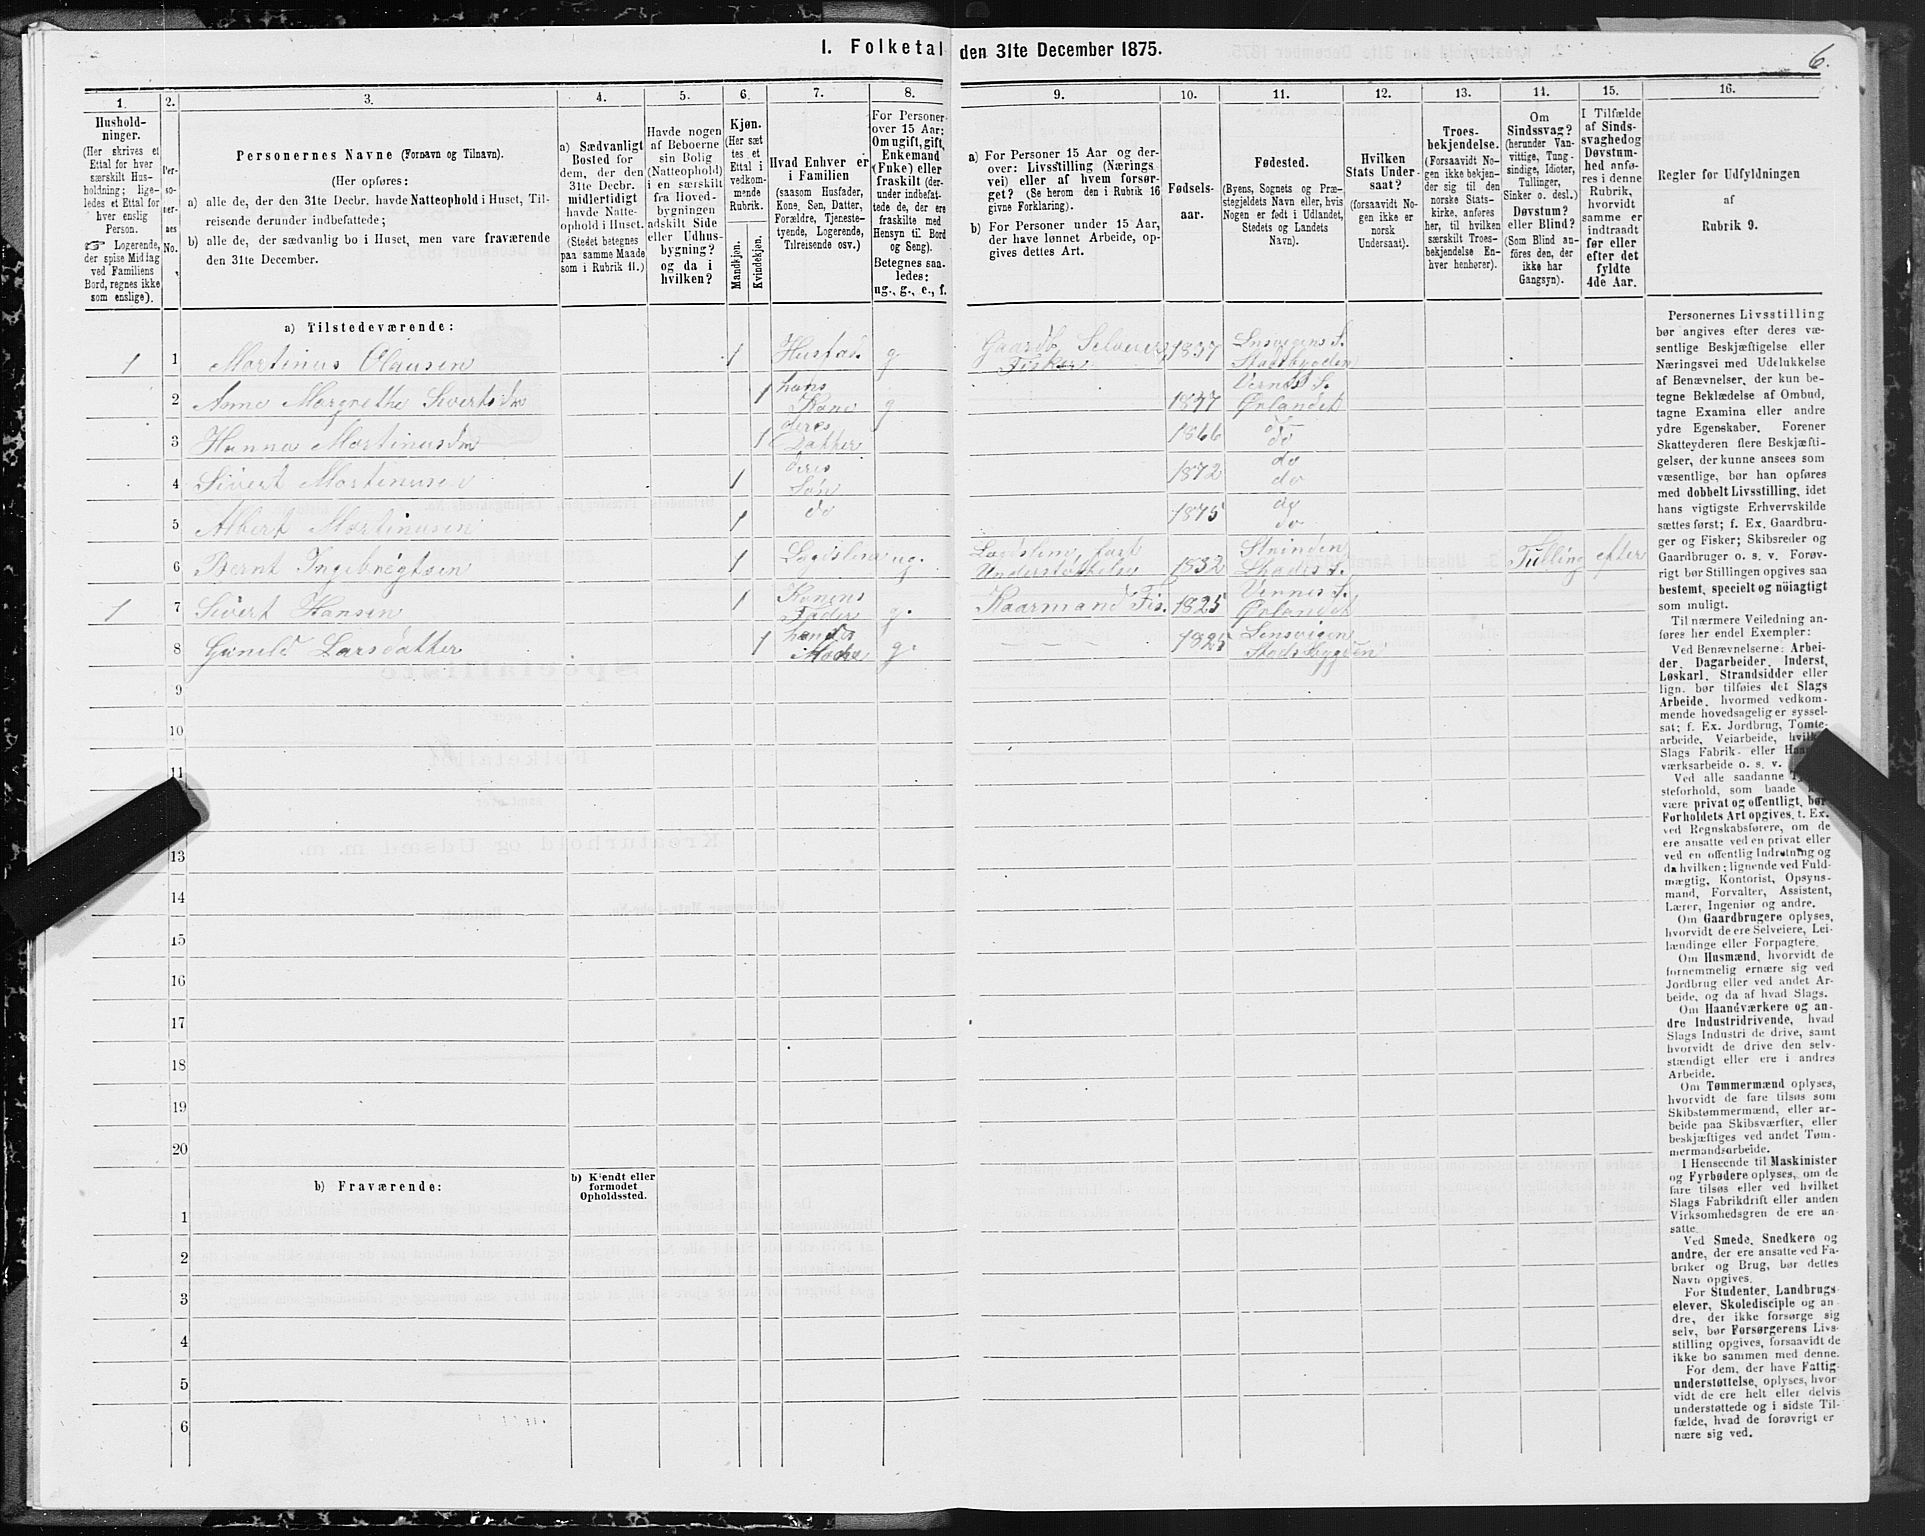 I. Folketal den 31te December 1875.
6.
1.
Hushold-
ninger.
(Her skrives et
Ettal for hver
særskilt Hus-
holdning; lige-
ledes et Ettal for
hver enslig
Person.
☞ Logerende,
der spise Middag
ved Familiens
Bord, regnes ikke
som enslige).
2.
Per-
so-
ner-
nes
No.
3.
Personernes Navne (Fornavn og Tilnavn).
(Her opføres:
a) alle de, der den 31te Decbr. havde Natteophold i Huset, Til-
reisende derunder indbefattede;
b) alle de, der sædvanlig bo i Huset, men vare fraværende
den 31te December.
4.
a) Sædvanligt
Bosted for
dem, der den
31te Decbr.
midlertidigt
havde Natte-
ophold i Huset.
(Stedet betegnes
paa samme Maade
som i Rubrik 11.)
5.
Havde nogen
af Beboerne
sin Bolig
(Natteophold)
i en særskilt
fra Hoved-
bygningen
adskilt Side
eller Udhus-
bygning?
og da i
hvilken?
6.
Kjøn.
(Her sæt
tes et
Ettal i
vedkom-
mende
Rubrik.
Mandkjøn.
Kvindekjøn.
7.
Hvad Enhver er
i Familien
(saasom Husfader,
Kone, Søn, Datter,
Forældre, Tjeneste-
tyende, Logerende,
Tilreisende osv.)
8.
For Personer
over 15 Aar:
Om ugift, gift,
Enkemand
(Enke) eller
fraskilt (der-
under indbefat-
tede de, der ere
fraskilte med
Hensyn til Bord
og Seng).
Betegnes saa-
ledes:
ug., g., e., f.
9.
a) For Personer 15 Aar og der-
over: Livsstilling (Nærings-
vei) eller af hvem forsør-
get? (Se herom den i Rubrik 16
givne Forklaring).
b) For Personer under 15 Aar,
der have lønnet Arbeide, op-
gives dettes Art.
10.
Fødsels-
aar.
11.
Fødested.
(Byens, Sognets og Præ-
stegjeldets Navn eller, hvis
Nogen er født i Udlandet,
Stedets og Landets
Navn).
12.
Hvilken
Stats Under-
saat?
(forsaavidt No-
gen ikke er
norsk
Undersaat).
13.
Troes-
bekjendelse.
(Forsaavidt No-
gen ikke bekjen-
der sig til den
norske Stats-
kirke, anføres
her, til hvilken
særskilt Troes-
bekjendelse En-
hver henhører).
14.
Om
Sindssvag?
(herunder Van-
vittige, Tung-
sindige, Idioter,
Tullinger,
Sinker o. desl.)
Døvstum?
eller Blind?
(Som Blind an-
føres den, der
ikke har
Gangsyn).
15.
I Tilfælde
af Sinds-
svaghed og
Døvstum-
hed anfø-
res i denne
Rubrik,
hvorvidt
samme er
indtraadt
før eller
efter det
fyldte
4de Aar.
16.
Regler for Udfyldningen
af
Rubrik 9.
a) Tilstedeværende:
1 1 Martinus Olausen 1 g. Gaardb. Selveier, Fisker 1837
2 Anne Margrethe Sivertsdtr 1 hans Kone g 1837 Ørlandet
3 Hanna Martinusdtr 1 deres Datter 1866 do do
4 Sivert Martinusen 1 deres Søn 1872 do do
5 Albert Martinusen 1 do 1875 do do
6 Bernt Ingebregtsen 1 ug. Understøttelse 1832 Strinden Tulling efter
1 7 Sivert Hansen 1 Konens Fader g. Kaarmand Fis. 1825 Ørlandet
8 Gunild Larsdatter 1 Moder g. 1825
9
10
11
13
14
15
16
17
18
19
20
b) Fraværende:
b) Kjendt eller
formodet
Opholdssted.
1
2
3
4
5
6
Personernes Livsstilling
bør angives efter deres væ-
sentlige Beskjæftigelse eller
Næringsvei med Udelukkelse
af Benævnelser, der kun be-
tegne Beklædelse af Ombud,
tagne Examina eller andre
ydre Egenskaber. Forener
Skatteyderen flere Beskjæfti-
gelser, der kunne ansees som
væsentlige, bør han opføres
med dobbelt Livsstilling, idet
hans vigtigste Erhvervskilde
sættes først; f. Ex. Gaardbru-
ger og Fisker; Skibsreder og
Gaardbruger o. s. v. Forøv-
rigt bør Stillingen opgives saa
bestemt, specielt og nöiagtig
som muligt.
Til nærmere Veiledning an-
føres her endel Exempler:
Ved Benævnelserne: Arbei-
der, Dagarbeider, Inderst,
Løskarl, Strandsidder eller
lign. bør tilføies det Slags
Arbeide, hvormed vedkom-
mende hovedsagelig er syssel-
sat; f. Ex. Jordbrug, Tomte-
arbeide, Veiarbeide, hvilket
Slags Fabrik- eller Haand-
værksarbeide o. s. v.
Ved alle saadanne
steforhold, som baade
være privat og offentligt, bør
Forholdets Art opgives, t. Ex.
ved Regnskabsførere, om de
ere ansatte ved en privat eller
ved en offentlig Indretning og
da hvilken; lignende ved Fuld-
mægtig, Kontorist, Opsyns-
mand, Forvalter, Assistent,
Lærer, Ingeniør og andre.
Om Gaardbrugere oplyses,
hvorvidt de ere Selveiere, Lei-
lændinge eller Forpagtere.
Om Husmænd, hvorvidt de
fornemmelig ernære sig ved
Jordbrug eller ved andet Ar-
beide, og da af hvad Slags.
Om Haandværkere og an-
dre Industridrivende, hvad
Slags Industri de drive, samt
hvorvidt de drive den selv-
stændigt eller ere i andres
Arbeide.
Om Tømmermænd oplyses,
hvorvidt de fare tilsøs som
Skibstømmermænd, eller ar-
beide paa Skibsværfter, eller
beskjæftiges ved andet Tøm-
mermandsarbeide.
I Henseende til Maskinister
og Fyrbødere oplyses, om de
fare tilsøs eller ved hvilket
Slags Fabrikdrift eller anden
Virksomhedsgren de ere an-
satte.
Ved Smede, Snedkere og
andre, der ere ansatte ved Fa-
briker og Brug, bør dettes
Navn opgives.
For Studenter, Landbrugs-
elever, Skoledisciple og an-
dre, der ikke forsørge sig
selv, bør Forsørgerens Livs-
stilling opgives, forsaavidt de
ikke bo sammen med denne.
For dem, der have Fattig-
understøttelse, oplyses, hvor-
vidt de ere helt eller delvis
understøttede og i sidste Til-
fælde, hvad de forøvrigt er
nære sig ved.